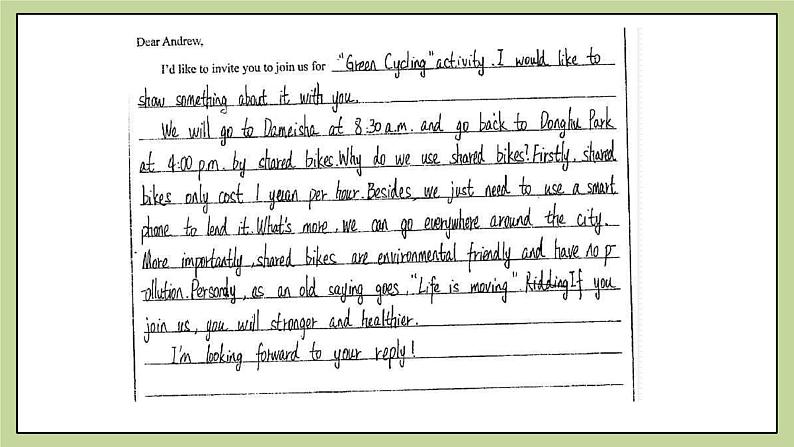 Dear Andrew,
I'd like to invite you to join us for "Green Cycling" activity. I would like to
show something about it with you.
We will go to Dameisha at 8:30 a.m. and go back to Donghu Park
at 4:00 p.m. by shared bikes. Why do we use shared bikes? Firstly, shared
bikes only cost 1 yuan per hour. Besides, we just need to use a smart
phone to lend it. What's more, we can go everywhere around the city.
More importantly, shared bikes are environmental friendly and have no p-
ollution. Personaly, as an old saying goes, "Life is moving". Ridding If you
join us, you will stronger and healthier.
I'm looking forward to your reply!